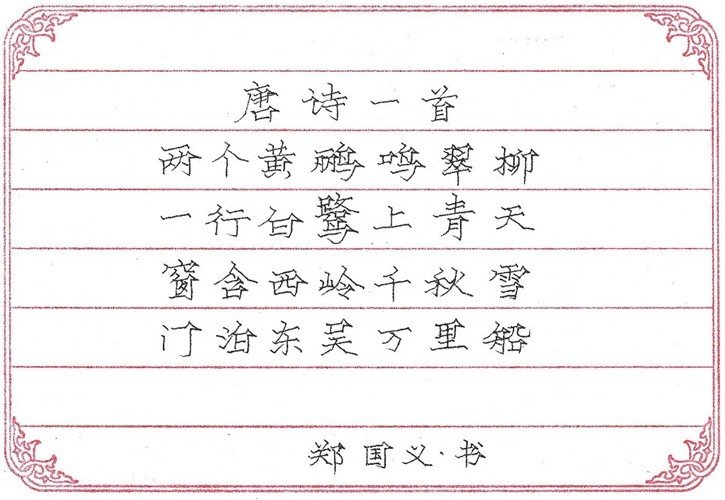 唐诗一首
两个黄鹂鸣翠柳
一行白鹭上青天
窗含西岭千秋雪
门泊东吴万里船
郑国义·书